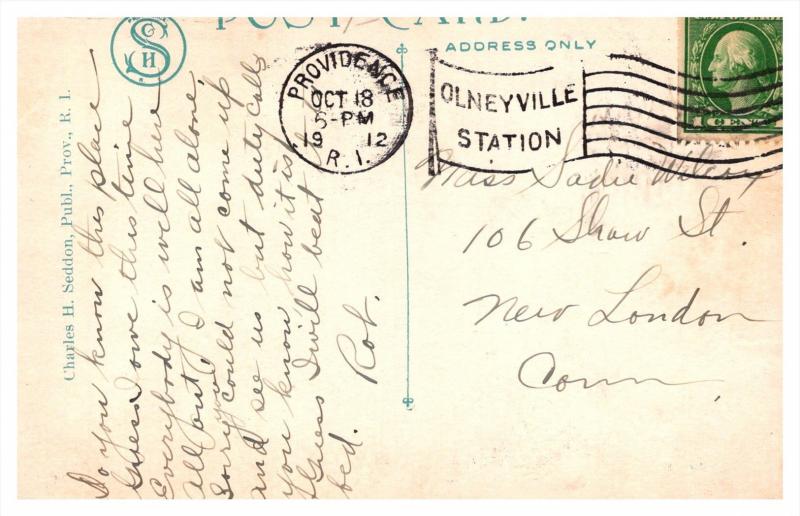 POST CARD.
ADDRESS ONLY
CHS
Charles H. Seddon, Publ., Prov., R. I.
PROVIDENCE
OCT 18
5-PM
1912
R. I.
OLNEYVILLE
STATION
1 CENT
Miss Sadie Wilcox
106 Shaw St.
New London
Conn
Do you know this place
Guess I owe this time
Everybody is well here
all out, I am all alone,
Sorry you could not come up
and see us but duty calls
you know how it is
Guess I will beat
bed.
Rob.